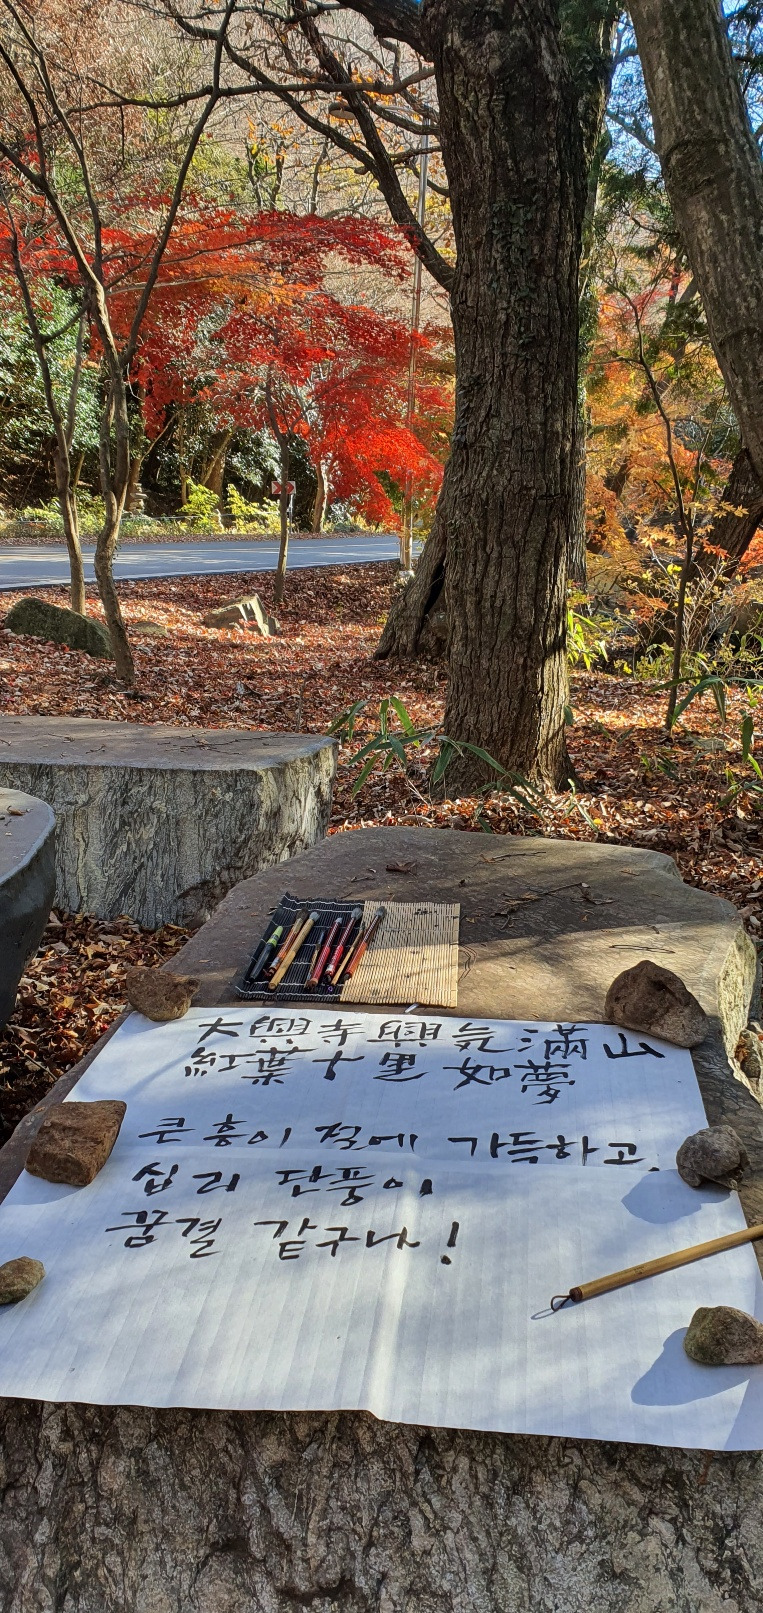 大興寺興気滿山
紅葉十里如夢
큰 흥이 절에 가득하고,
십리 단풍이
꿈결 같구나!